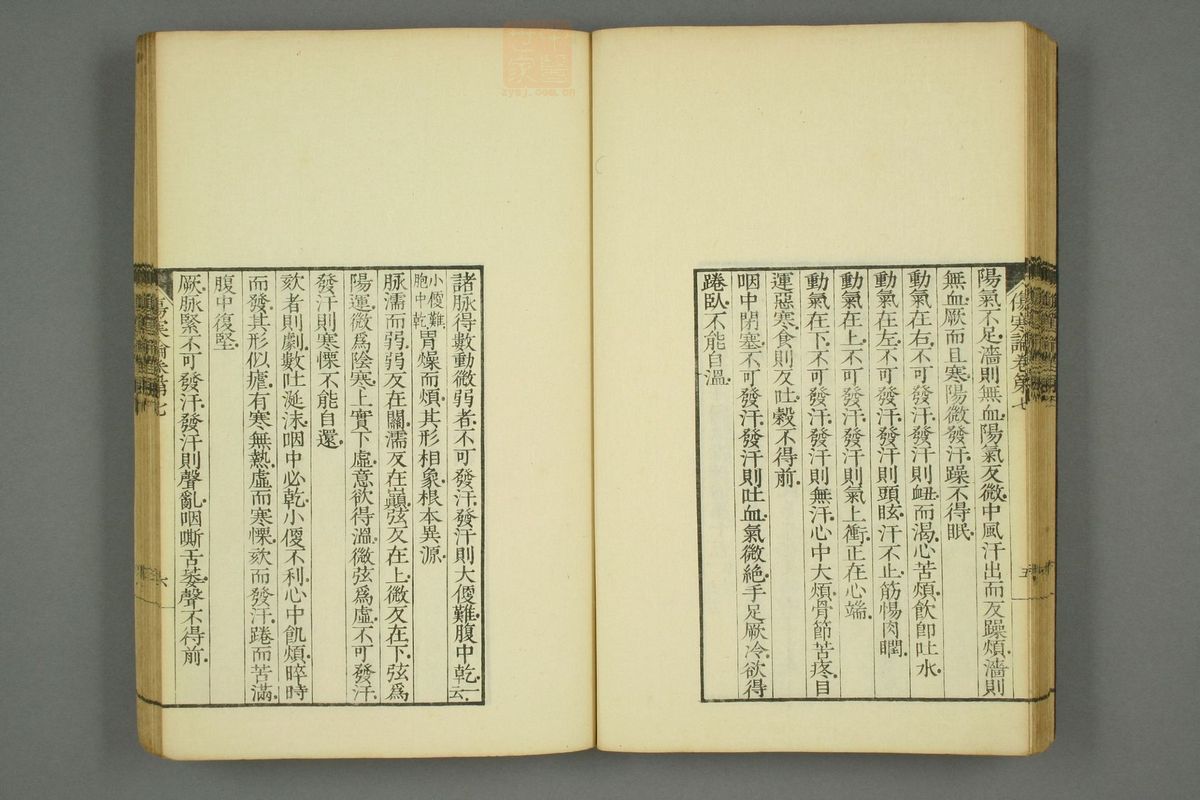 陽氣不足濇則無血陽氣反微中風汗出而反躁煩濇則
無血厥而且寒陽微發汗躁不得眠
動氣在右不可發汗發汗則衄而渴心苦煩飲卽吐水
動氣在左不可發汗發汗則頭眩汗不止筋惕肉瞤
動氣在上不可發汗發汗則氣上衝正在心端
動氣在下不可發汗發汗則無汗心中大煩骨節苦疼目
運惡寒食則反吐穀不得前
咽中閉塞不可發汗發汗則吐血氣微絶手足厥冷欲得
踡臥不能自溫
傷寒論卷第七
五
諸脉得數動微弱者不可發汗發汗則大便難腹中乾一云
小便難胞中乾胃燥而煩其形相象根本異源
脉濡而弱弱反在關濡反在巔弦反在上微反在下弦爲
陽運微爲陰寒上實下虛意欲得溫微弦爲虛不可發汗
發汗則寒慄不能自還
欬者則劇數吐涎沫咽中必乾小便不利心中飢煩晬時
而發其形似瘧有寒無熱虛而寒慄欬而發汗踡而苦滿
腹中復堅
厥脉緊不可發汗發汗則聲亂咽嘶舌萎聲不得前
傷寒論卷第七
六
zysj.com.cn